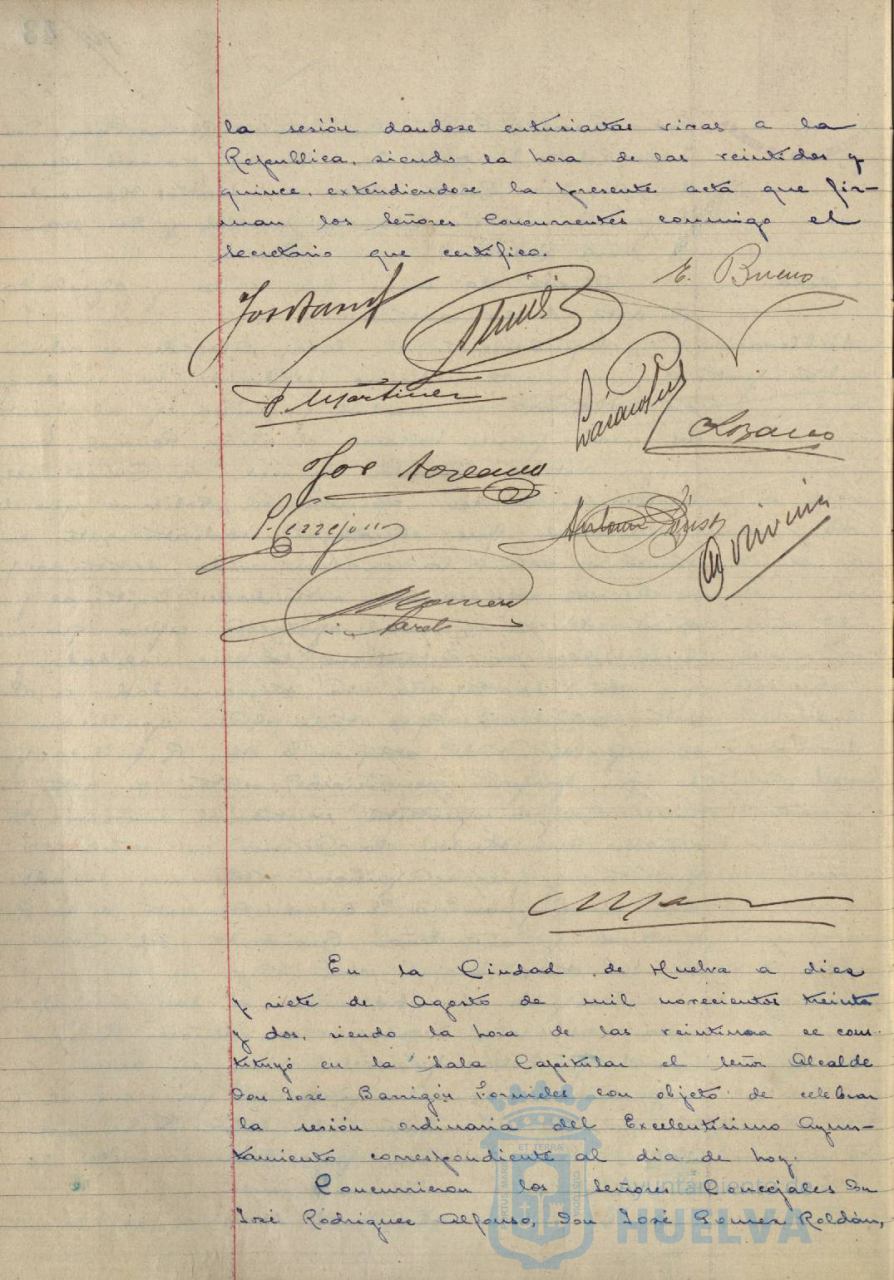 la sesión dandose entusiastas vivas a la
Republica, siendo la hora de las veintidos y
quince, extendiendose la presente acta que fir-
man los señores Concurrentes conmigo el
secretario que certifico.
E. Bueno
P. Martinez
Lozano
José
P. Cerrejon
Antonio
Romero
En la Ciudad de Huelva a diez
y siete de Agosto de mil novecientos treinta
y dos, siendo la hora de las veintiuna se cons-
tituyó en la Sala Capitular el señor Alcalde
Don José Barrigón Fornieles con objeto de celebrar
la sesión ordinaria del Excelentísimo Ayun-
tamiento correspondiente al dia de hoy.
Concurrieron los señores Concejales Don
José Rodriguez Alfonso, Don José Gomez Roldán,
Ayuntamiento de
HUELVA